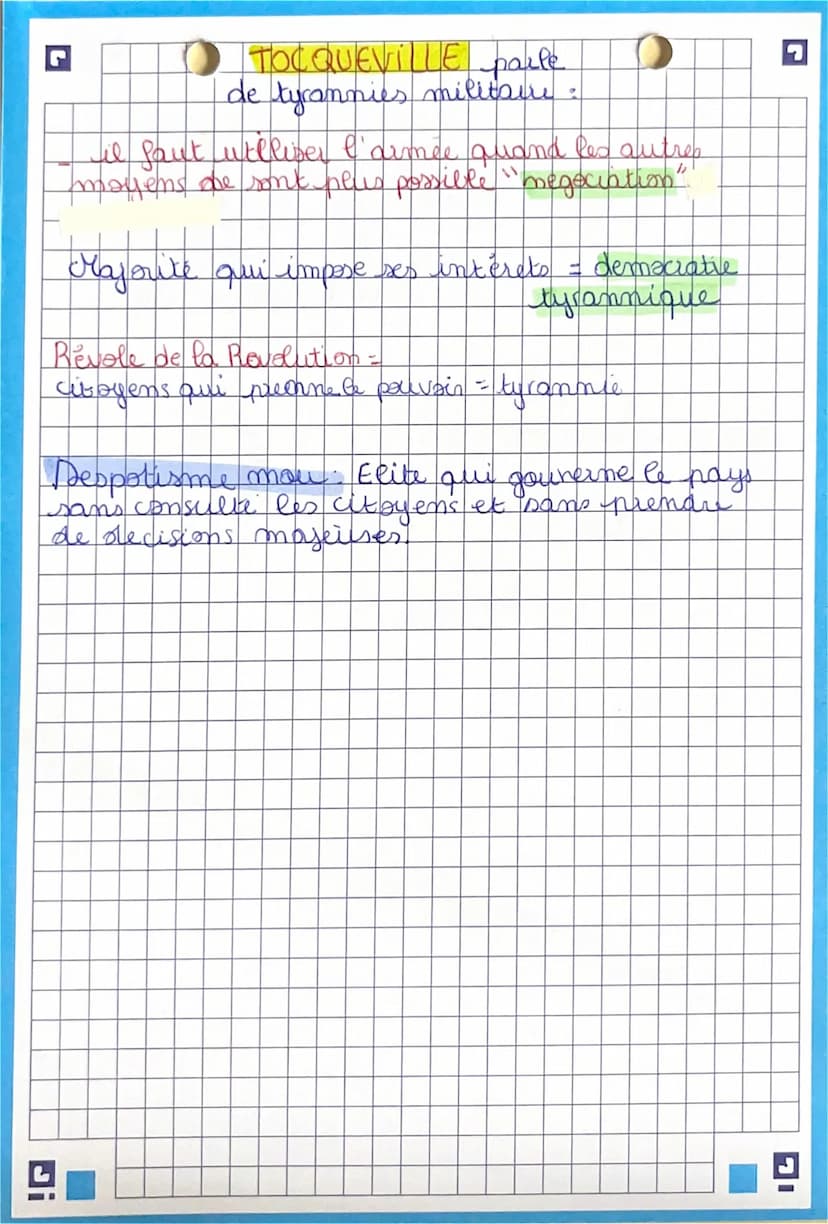 TOCQUEVILLE parle
de tyrannies militaire :
- il faut utiliser l'armée quand les autres
moyens de sont plus possible "négociation"
Majorité qui impose ses intérets = democratie
tyrannique
Révole de la Revolution =
citoyens qui prenne le pouvoir = tyrannie
Despotisme mou : Elite qui gouverne le pays
sans consulté les citoyens et sans prendre
de decisions majeures.